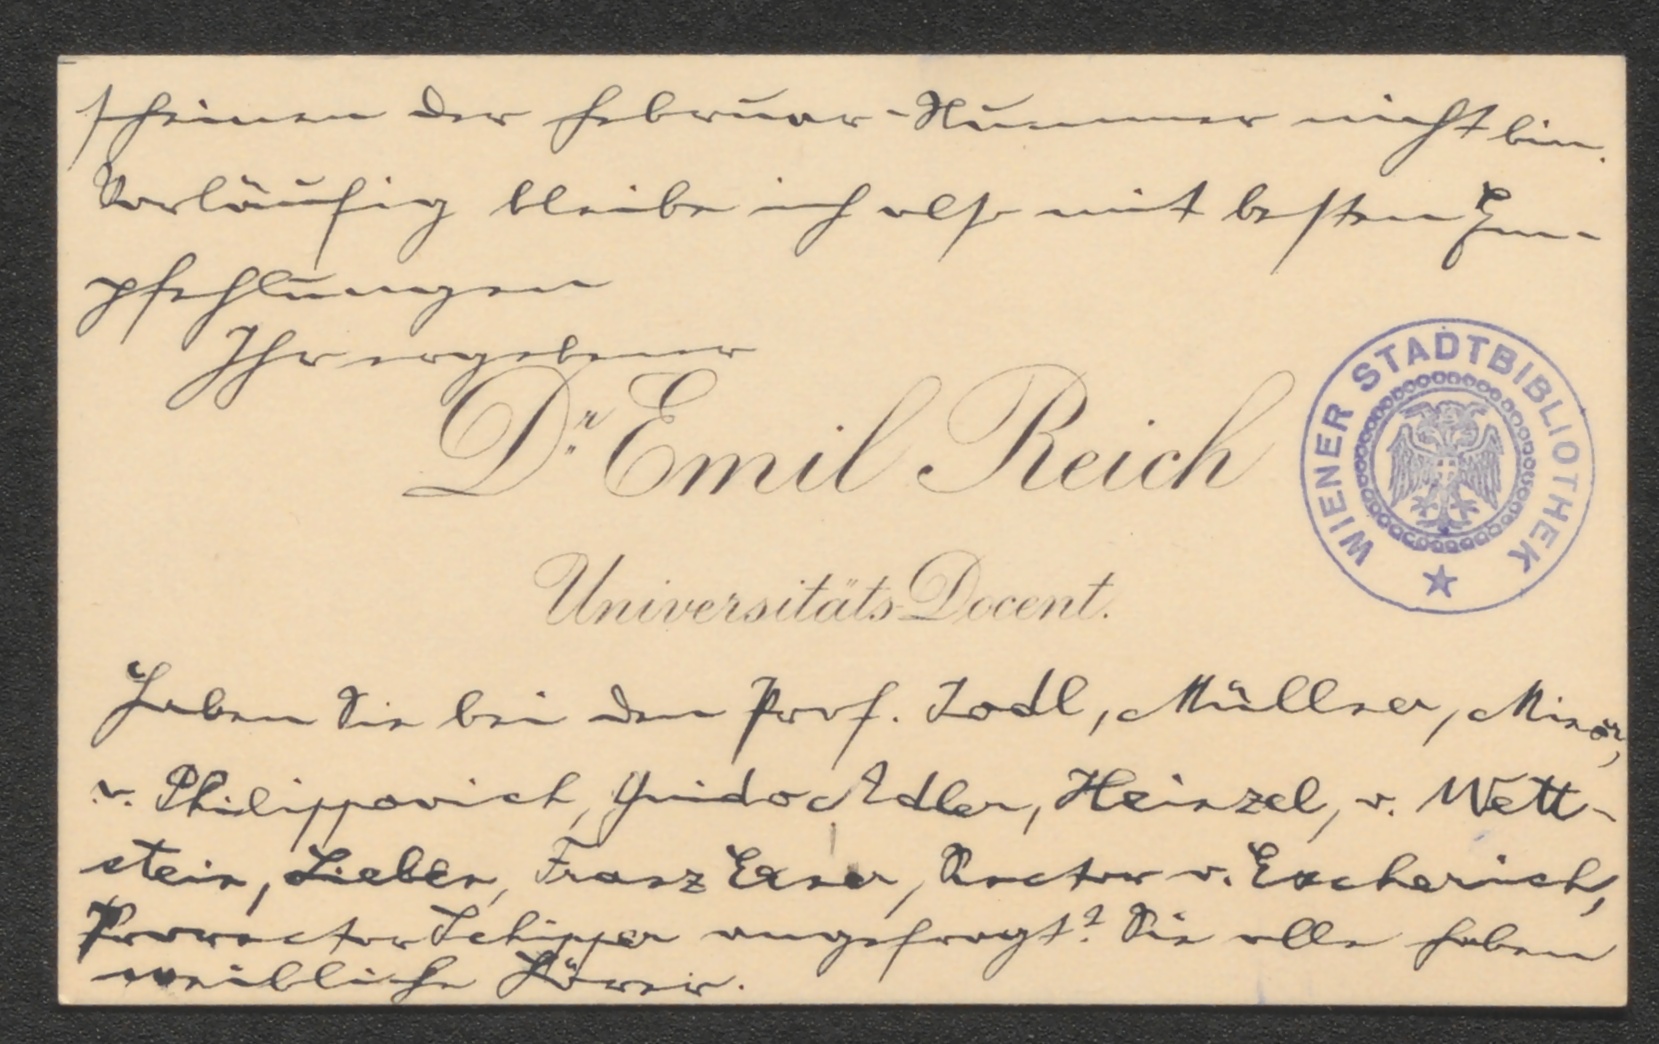 scheinen der Februar-Nummer nicht bin.
Vorläufig bleibe ich also mit besten Em-
pfehlungen
Ihr ergebener
Dr. Emil Reich
Universitäts-Docent.
WIENER STADTBIBLIOTHEK
Haben Sie bei den Prof. Jodl, Müllner, Minor,
v. Philippovich, Guido Adler, Heinzel, v. Wett-
stein, Lieben, Franz Exner, Rector v. Escherich,
Prorector Schipper angefragt? Sie alle haben
weibliche Hörer.